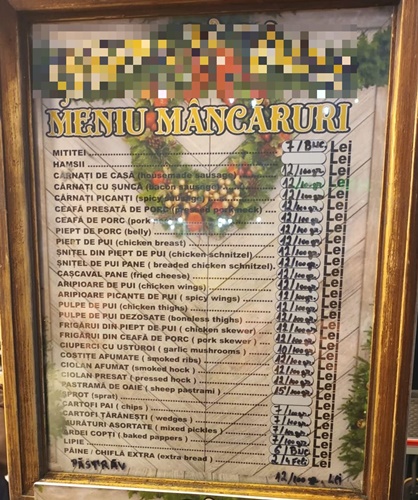 MENIU MÂNCĂRURI
MITITEI 7/BUC Lei
HAMSII Lei
CÂRNAȚI DE CASĂ (housemade sausage) 12/100gr. Lei
CÂRNAȚI CU ȘUNCĂ (bacon sausage) 12/100gr. Lei
CÂRNAȚI PICANȚI (spicy sausage) 12/100gr. Lei
CEAFĂ PRESATĂ DE PORC (pressed pork neck) 12/100gr. Lei
CEAFĂ DE PORC (pork 12/100gr. Lei
PIEPT DE PORC (belly) 12/100gr. Lei
PIEPT DE PUI (chicken breast) 12/100gr. Lei
ȘNIȚEL DIN PIEPT DE PUI (chicken schnitzel) 12/100gr. Lei
ȘNIȚEL DE PUI PANE ( breaded chicken schnitzel) 12/100gr. Lei
CAȘCAVAL PANE (fried cheese) 12/100gr. Lei
ARIPIOARE DE PUI (chicken wings) 12/100gr. Lei
ARIPIOARE PICANTE DE PUI ( spicy wings) 12/100gr. Lei
PULPE DE PUI (chicken thighs) 12/100gr. Lei
PULPE DE PUI DEZOSATE (boneless thighs) 12/100gr. Lei
FRIGĂRUI DIN PIEPT DE PUI ( chicken skewer) 12/100gr. Lei
FRIGĂRUI DIN CEAFĂ DE PORC ( pork skewer ) 12/100gr. Lei
CIUPERCI CU USTUROI ( garlic mushrooms ) 10/100gr. Lei
COSTIȚE AFUMATE ( smoked ribs) 12/100gr. Lei
CIOLAN AFUMAT (smoked hock ) 12/100gr. Lei
CIOLAN PRESAT ( pressed hock ) 12/100gr. Lei
PASTRAMĂ DE OAIE ( sheep pastrami ) 15/100gr. Lei
ȘPROT (sprat) Lei
CARTOFI PAI ( chips ) 7/100gr. Lei
CARTOFI ȚĂRĂNEȘTI ( wedges ) 7/100gr. Lei
MURĂTURI ASORTATE ( mixed pickles ) 7/100gr. Lei
ARDEI COPȚI ( baked pappers ) 7/100gr. Lei
LIPIE 6/BUC Lei
PÂINE / CHIFLĂ EXTRA (extra bread ) 2/4 Felii Lei
PĂSTRĂV 12/100gr. LEI